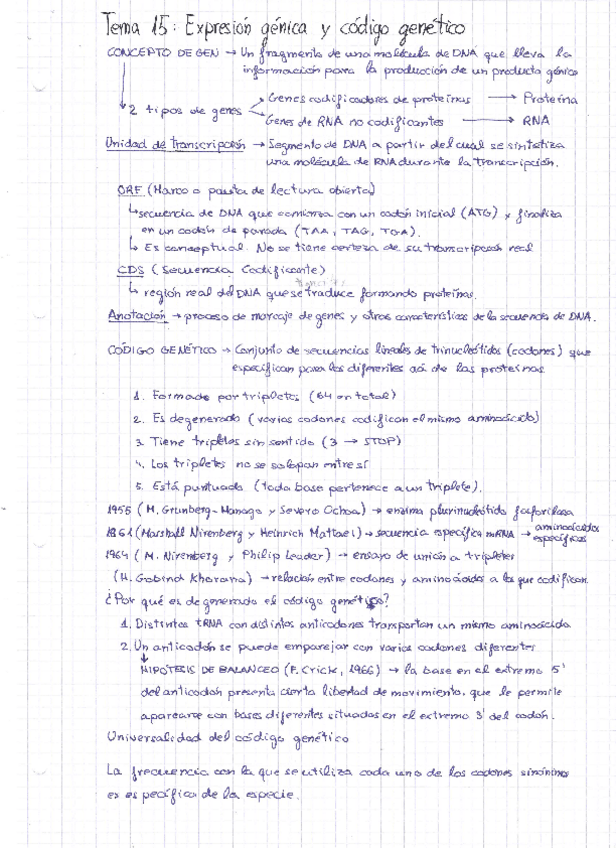 Tema 15: Expresión génica y código genético
CONCEPTO DE GEN → Un fragmento de una molécula de DNA que lleva la
información para la producción de un producto génico
2 tipos de genes
Genes codificadores de proteínas → Proteína
Genes de RNA no codificantes → RNA
Unidad de transcripción → Segmento de DNA a partir del cual se sintetiza
una molécula de RNA durante la transcripción.
ORF (Marco o pauta de lectura abierta)
↳ secuencia de DNA que comienza con un codón inicial (ATG) y finaliza
en un codón de parada (TAA, TAG, TGA).
↳ Es conceptual. No se tiene certeza de su transcripción real
CDS (Secuencia Codificante)
↳ región real del DNA que se traduce formando proteínas.
Anotación → proceso de marcaje de genes y otras características de la secuencia de DNA.
CÓDIGO GENÉTICO → Conjunto de secuencias lineales de trinucleótidos (codones) que
especifican para los diferentes aá de las proteínas
1. Formado por tripletes (64 en total)
2. Es degenerado (varios codones codifican el mismo aminoácido)
3. Tiene tripletes sin sentido (3 → STOP)
4. Los tripletes no se solapan entre sí
5. Está puntuado (toda base pertenece a un triplete).
1955 (M. Grunberg-Manago y Severo Ochoa) → enzima plurinucleótido fosforilasa
1961 (Marshall Nirenberg y Heinrich Mattaei) → secuencia específica mRNA → aminoácidos específicos
1964 (M. Nirenberg y Philip Leader) → ensayo de unión a tripletes
(H. Gobind Khorana) → relación entre codones y aminoácidos a los que codifican.
¿Por qué es degenerado el código genético?
1. Distintos tRNA con distintos anticodones transportan un mismo aminoácido
2. Un anticodón se puede emparejar con varios codones diferentes
↓
HIPÓTESIS DE BALANCEO (F. Crick, 1966) → la base en el extremo 5'
del anticodón presenta cierta libertad de movimiento, que le permite
aparearse con bases diferentes situadas en el extremo 3' del codón.
Universalidad del código genético
La frecuencia con la que se utiliza cada uno de los codones sinónimos
es específica de la especie.